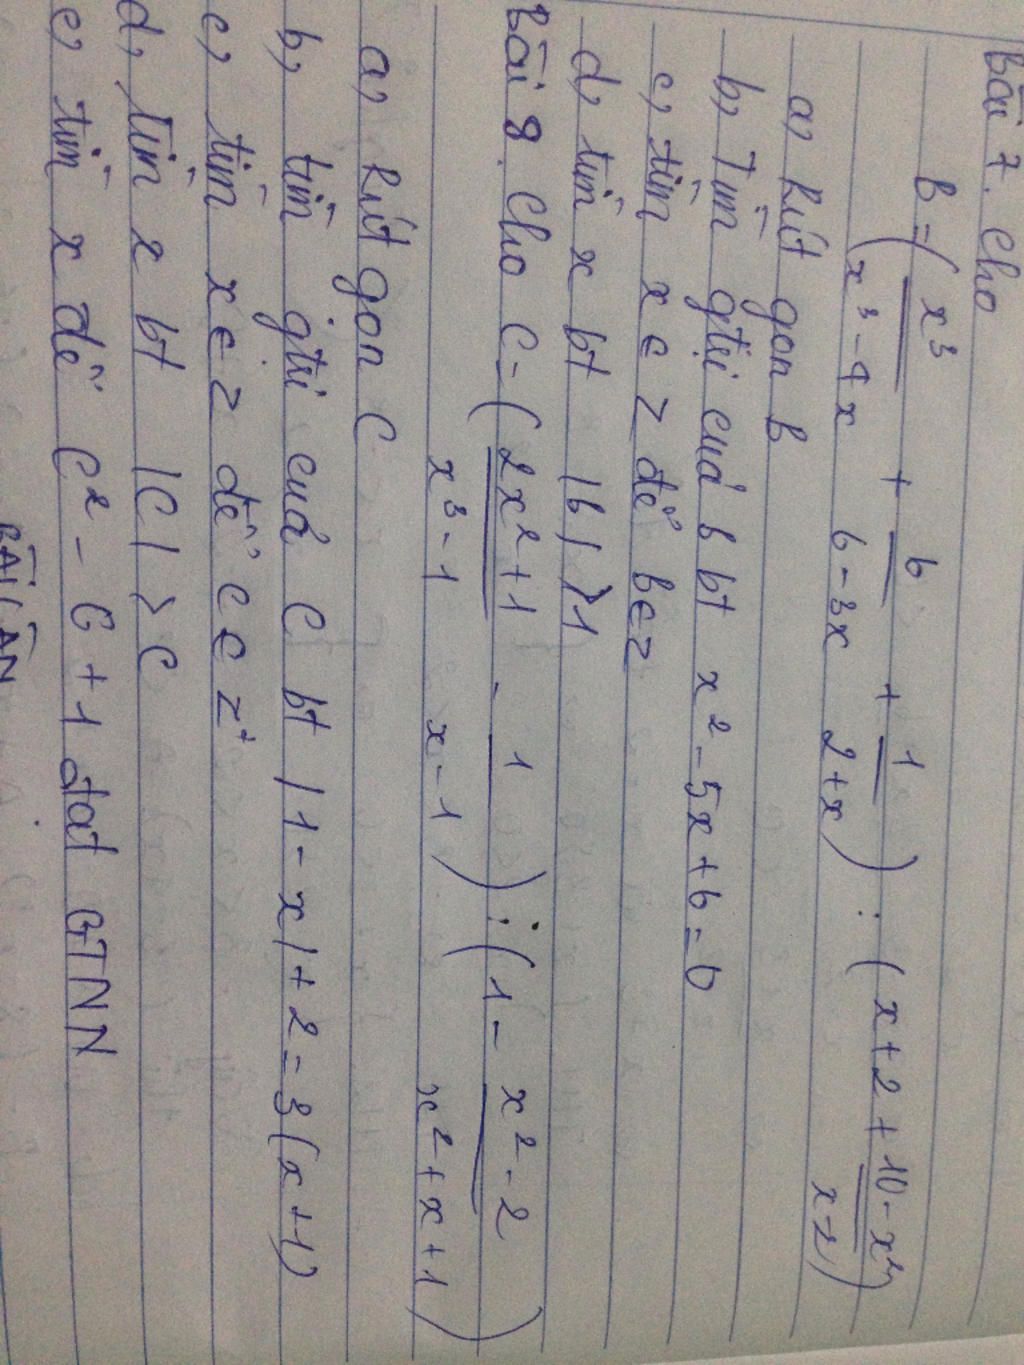 Bài 7. Cho
B = ( x³ / x³ - 4x + 6 / 6 - 3x + 1 / 2 + x ) : ( x + 2 + 10 - x² / x - 2 )
a, Rút gọn B
b, Tìm gtrị cuả B bt x² - 5x + 6 = 0
c, tìm x ∈ Z để B ∈ Z
d, tìm x bt |B| > 1
Bài 8. Cho C = ( 2x² + 1 / x³ - 1 - 1 / x - 1 ) : ( 1 - x² - 2 / x² + x + 1 )
a, Rút gọn C
b, tìm gtrị cuả C bt |1 - x| + 2 = 3(x + 1)
c, tìm x ∈ Z để C ∈ Z⁺
d, tìm x bt |C| > C
e, tìm x để C² - C + 1 đạt GTNN